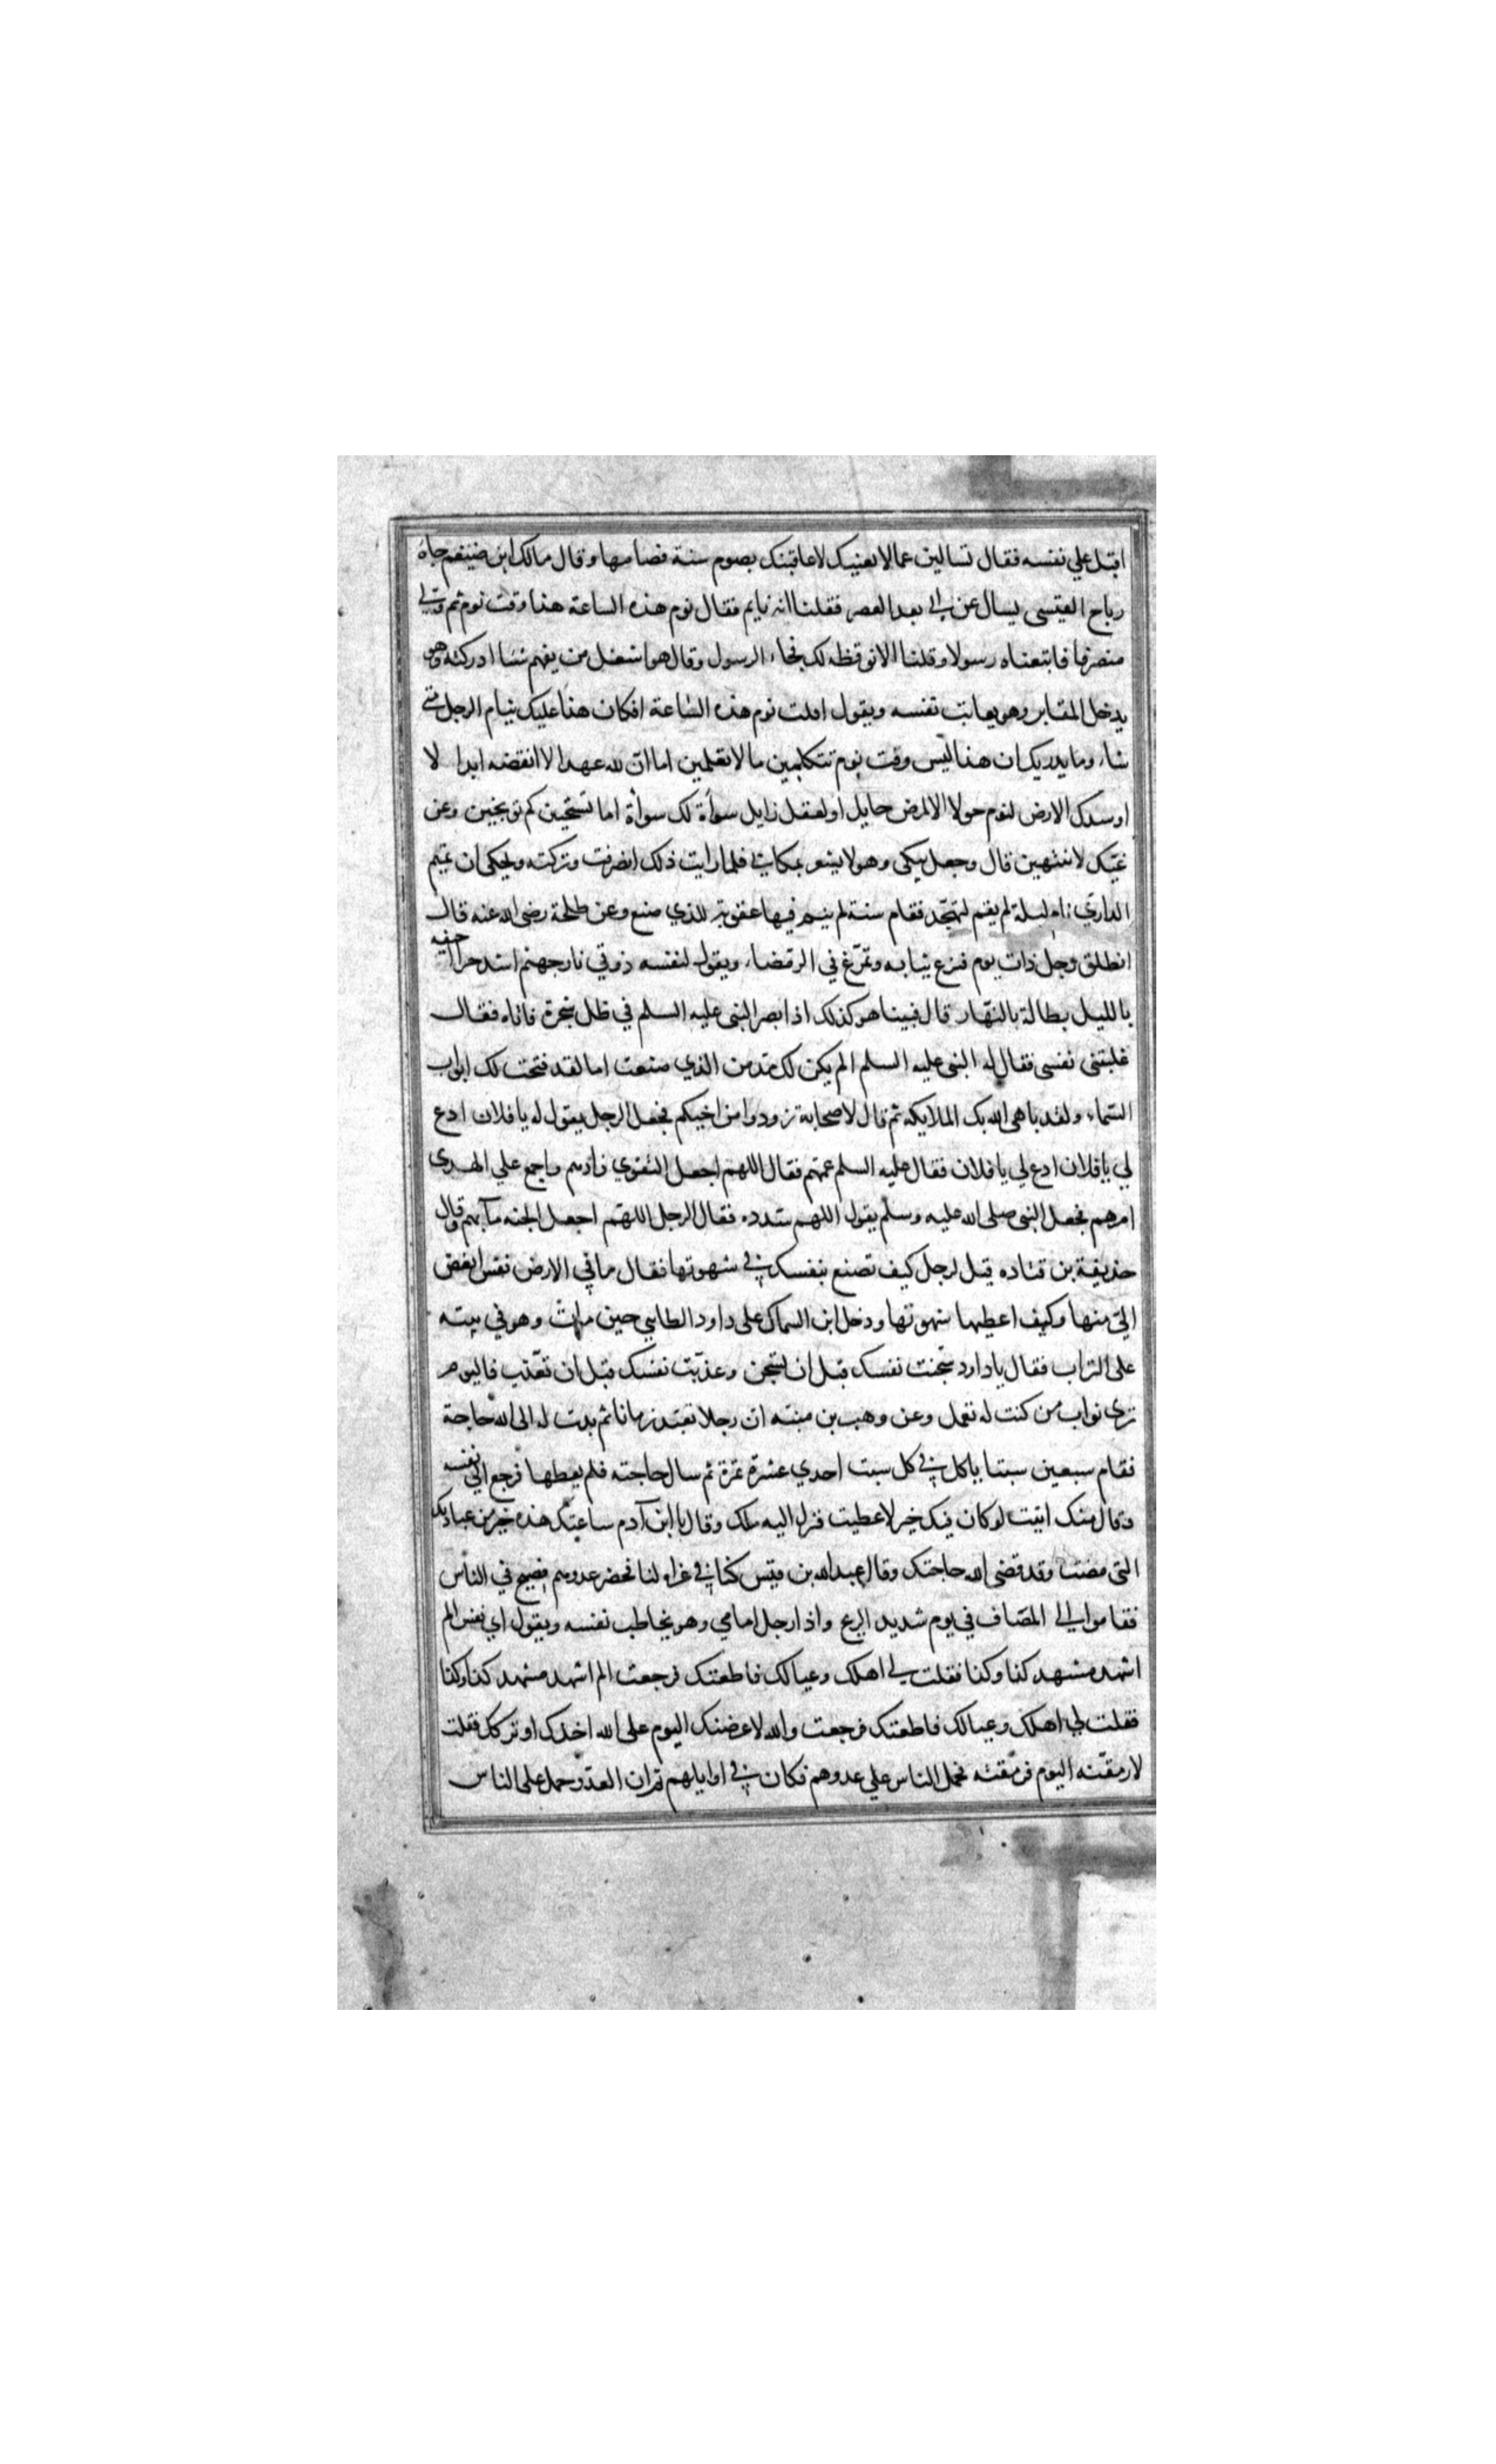 اقبل علي نفسه فقال تسالين عما لا يعنيك لاعاقبنك بصوم سنة فصامها وقال مالك ابن ضيغم جاء
رباح القيسى ليسال عن ابي بعد العصر فقلنا انه نايم فقال نوم هذه الساعة هذا وقت نوم ثم ولي
منصرفا فاتبعناه رسولا وقلنا الا نوقظه لك فجاء الرسول وقال هو اشغل من يفهم شيا ادركته وهو
يدخل المقابر وهو يعاتب نفسه ويقول اقلت نوم هذه الساعة افكان هذا عليك ينام الرجل متي
شاء وما يدريك ان هذا ليس وقت نوم تتكلمين ما لا تعلمين اما ان لله عهدا لا انقضه ابدا لا
اوسدك الارض لنوم حولا الا لمرض حايل او لعقل زايل سوأة لك سوأة اما تستحيين كم توبخين وعن
غيك لا تنتهين قال وجعل يبكى وهو لا يشعر بمكاني فلما رايت ذلك انصرفت وتركته ويحكى ان تميم
الداري نام ليلة لم يقم ليتهجد فقام سنة لم ينم فيها عقوبة للذي صنع وعن طلحة رضى الله عنه قال
انطلق رجل ذات يوم فنزع ثيابه وتمرغ في الرمضاء ويقول لنفسه ذوقي نار جهنم اشد حرا اجيفه
بالليل بطالة بالنهار قال فبينا هو كذلك اذا بصر النبى عليه السلم في ظل شجرة فاتاه فقال
غلبتنى نفسى فقال له النبى عليه السلم الم يكن لك بد من الذي صنعت اما لقد فتحت لك ابواب
السماء ولقد باهى الله بك الملايكه ثم قال لاصحابه تزودوا من اخيكم فجعل الرجل يقول له يا فلان ادع
لي يا فلان ادع لي يا فلان فقال عليه السلم عمهم فقال اللهم اجعل التقوي زادهم واجمع علي الهدى
امرهم فجعل النبى صلى الله عليه وسلم يقول اللهم سدده فقال الرجل اللهم اجعل الجنه مآبهم وقال
حذيفة بن قتاده قيل لرجل كيف تصنع بنفسك في شهوتها فقال ما في الارض نفس ابغض
الي منها وكيف اعطيها شهوتها ودخل ابن السماك على داود الطايي حين مات وهو في بيته
على التراب فقال يا داود سجنت نفسك قبل ان تسجن وعذبت نفسك قبل ان تعذب فاليوم
ترى ثواب من كنت له تعمل وعن وهب بن منبه ان رجلا تعبد زمانا ثم بدت له الى الله حاجة
فقام سبعين سبتا ياكل في كل سبت احدي عشرة تمرة ثم سال حاجته فلم يعطها فرجع الي نفسه
وقال منك اتيت لو كان فيك خير لاعطيت فنزل اليه ملك وقال يا ابن آدم ساعتك هذه خير من عبادتك
التى مضت وقد قضى الله حاجتك وقال عبد الله بن قيس كنا في غزاه لنا فحضر عدوهم فصيح في الناس
فقاموا الي المصاف في يوم شديد الريح واذا رجل امامي وهو يخاطب نفسه ويقول اي نفس الم
اشهد مشهد كذا وكذا فقلت لي اهلك وعيالك فاطعتك فرجعت الم اشهد مشهد كذا وكذا
فقلت لي اهلك وعيالك فاطعتك فرجعت والله لاعرضنك اليوم على الله اخذك او تركك فقلت
لارمقنه اليوم فرمقته فحمل الناس علي عدوهم فكان في اوايلهم ثم ان العدو حمل على الناس